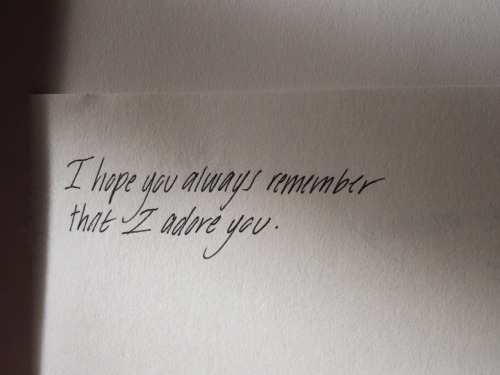 I hope you always remember
that I adore you.